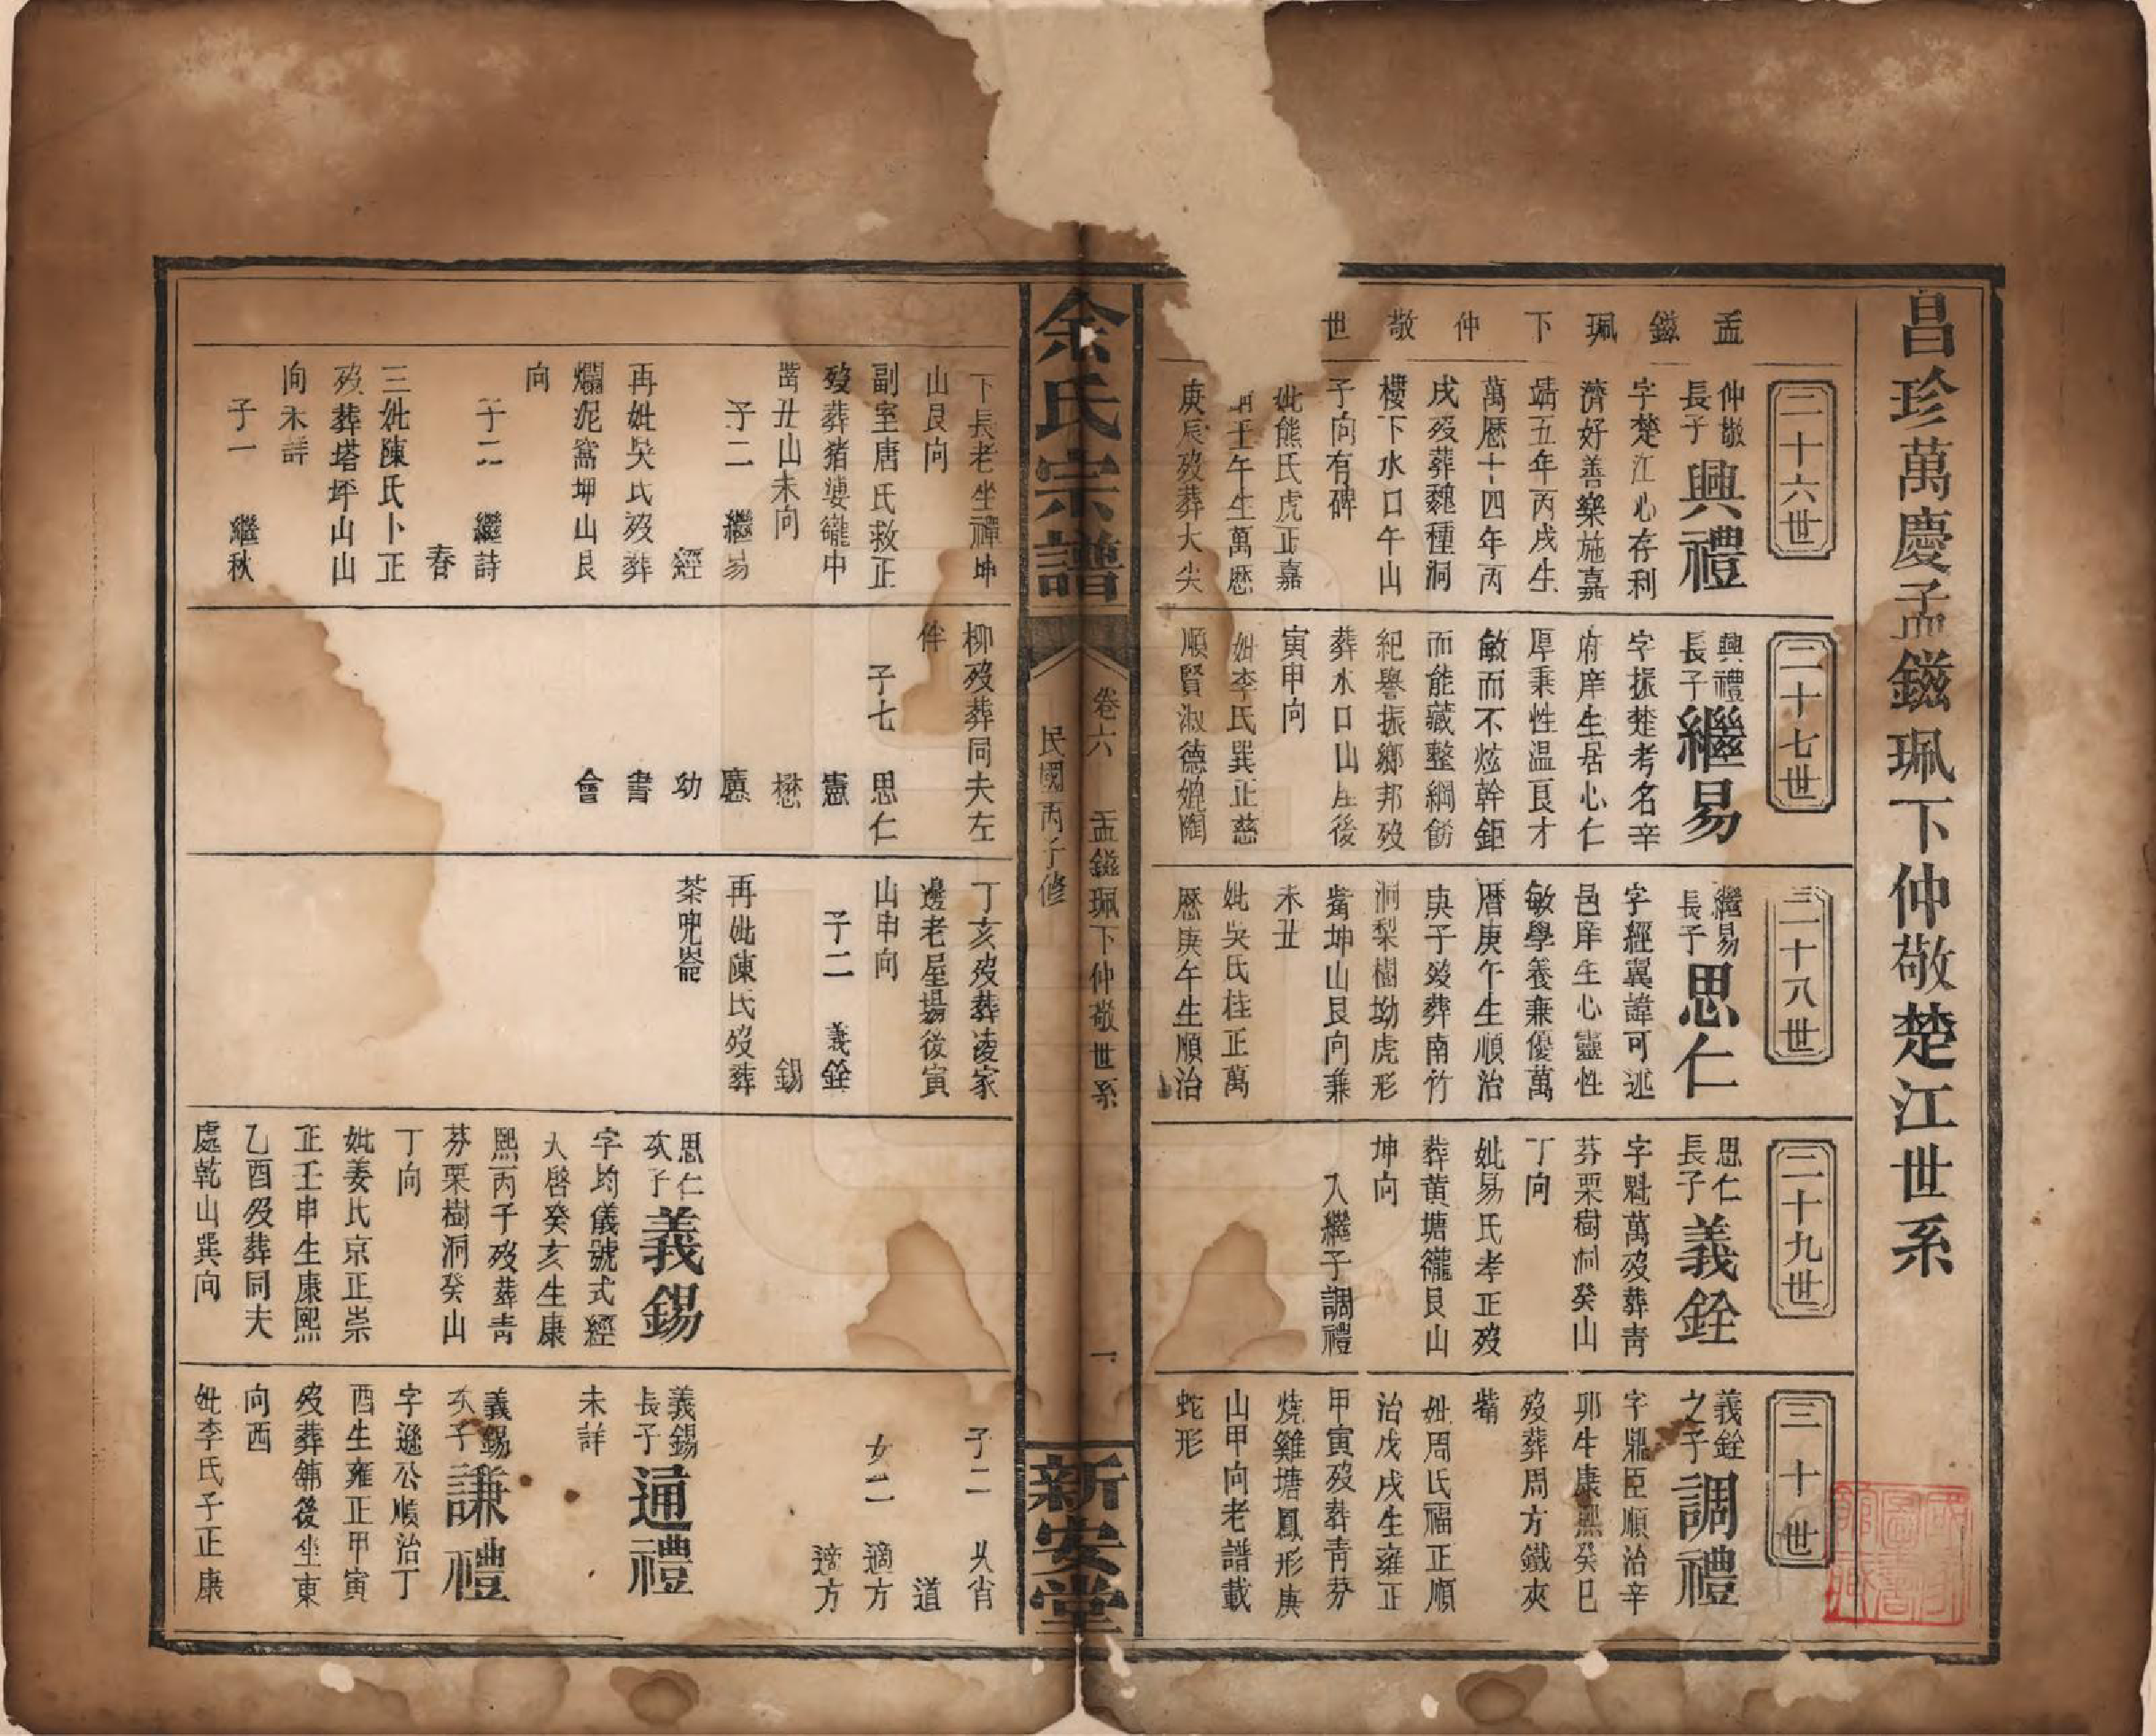 昌珍萬慶孟鎡珮下仲敬楚江世系
孟鎡珮下仲敬世
二十六世
仲敬長子興禮
字楚江心存利
濟好善樂施嘉
靖五年丙戌生
萬厯十四年丙
戌歿葬魏種洞
樓下水口午山
子向有碑
妣熊氏虎正嘉
靖壬午生萬厯
庚辰歿葬大尖
下長老坐禪坤
山艮向
副室唐氏救正
歿葬猪婆𡾋中
凿丑山未向
子二 繼易
經
再妣吳氏歿葬
爛泥窩坤山艮
向
子二 繼詩
春
三妣陳氏卜正
歿葬塔坪山山
向未詳
子一 繼秋
二十七世
興禮長子繼易
字振楚考名辛
府庠生居心仁
厚秉性温良才
敏而不炫幹鉅
而能藏整綱飭
紀譽振鄉邦歿
葬水口山屋後
寅申向
妣李氏巽正慈
順賢淑德媲陶
柳歿葬同夫左
伴
子七 思仁
憲
懋
應
幼
書
會
二十八世
繼易長子思仁
字經翼諱可述
邑庠生心靈性
敏學養兼優萬
曆庚午生順治
庚子歿葬南竹
洞梨樹坳虎形
觜坤山艮向兼
未丑
妣吳氏桂正萬
厯庚午生順治
丁亥歿葬凌家
邊老屋場後寅
山申向
子二 義銓
錫
再妣陳氏歿葬
茶兜崙
二十九世
思仁長子義銓
字魁萬歿葬青
芬栗樹洞癸山
丁向
妣易氏孝正歿
葬黄塘𡾋艮山
坤向
入繼子調禮
思仁次子義錫
字均儀號式經
天啓癸亥生康
熙丙子歿葬青
芬栗樹洞癸山
丁向
妣姜氏京正崇
正壬申生康熙
乙酉歿葬同夫
處乾山巽向
三十世
義銓之子調禮
字鼎臣順治辛
卯生康熙癸巳
歿葬周方鐵夾
觜
妣周氏福正順
治戊戌生雍正
甲寅歿葬青芬
燒雞塘鳳形庚
山甲向老譜載
蛇形
子二 必省
道
女二 適方
適方
義錫長子通禮
未詳
義錫次子謙禮
字遜公順治丁
酉生雍正甲寅
歿葬舖後坐東
向西
妣李氏子正康
余氏宗譜
卷六 孟鎡珮下仲敬世系 一
民國丙子修
新安堂